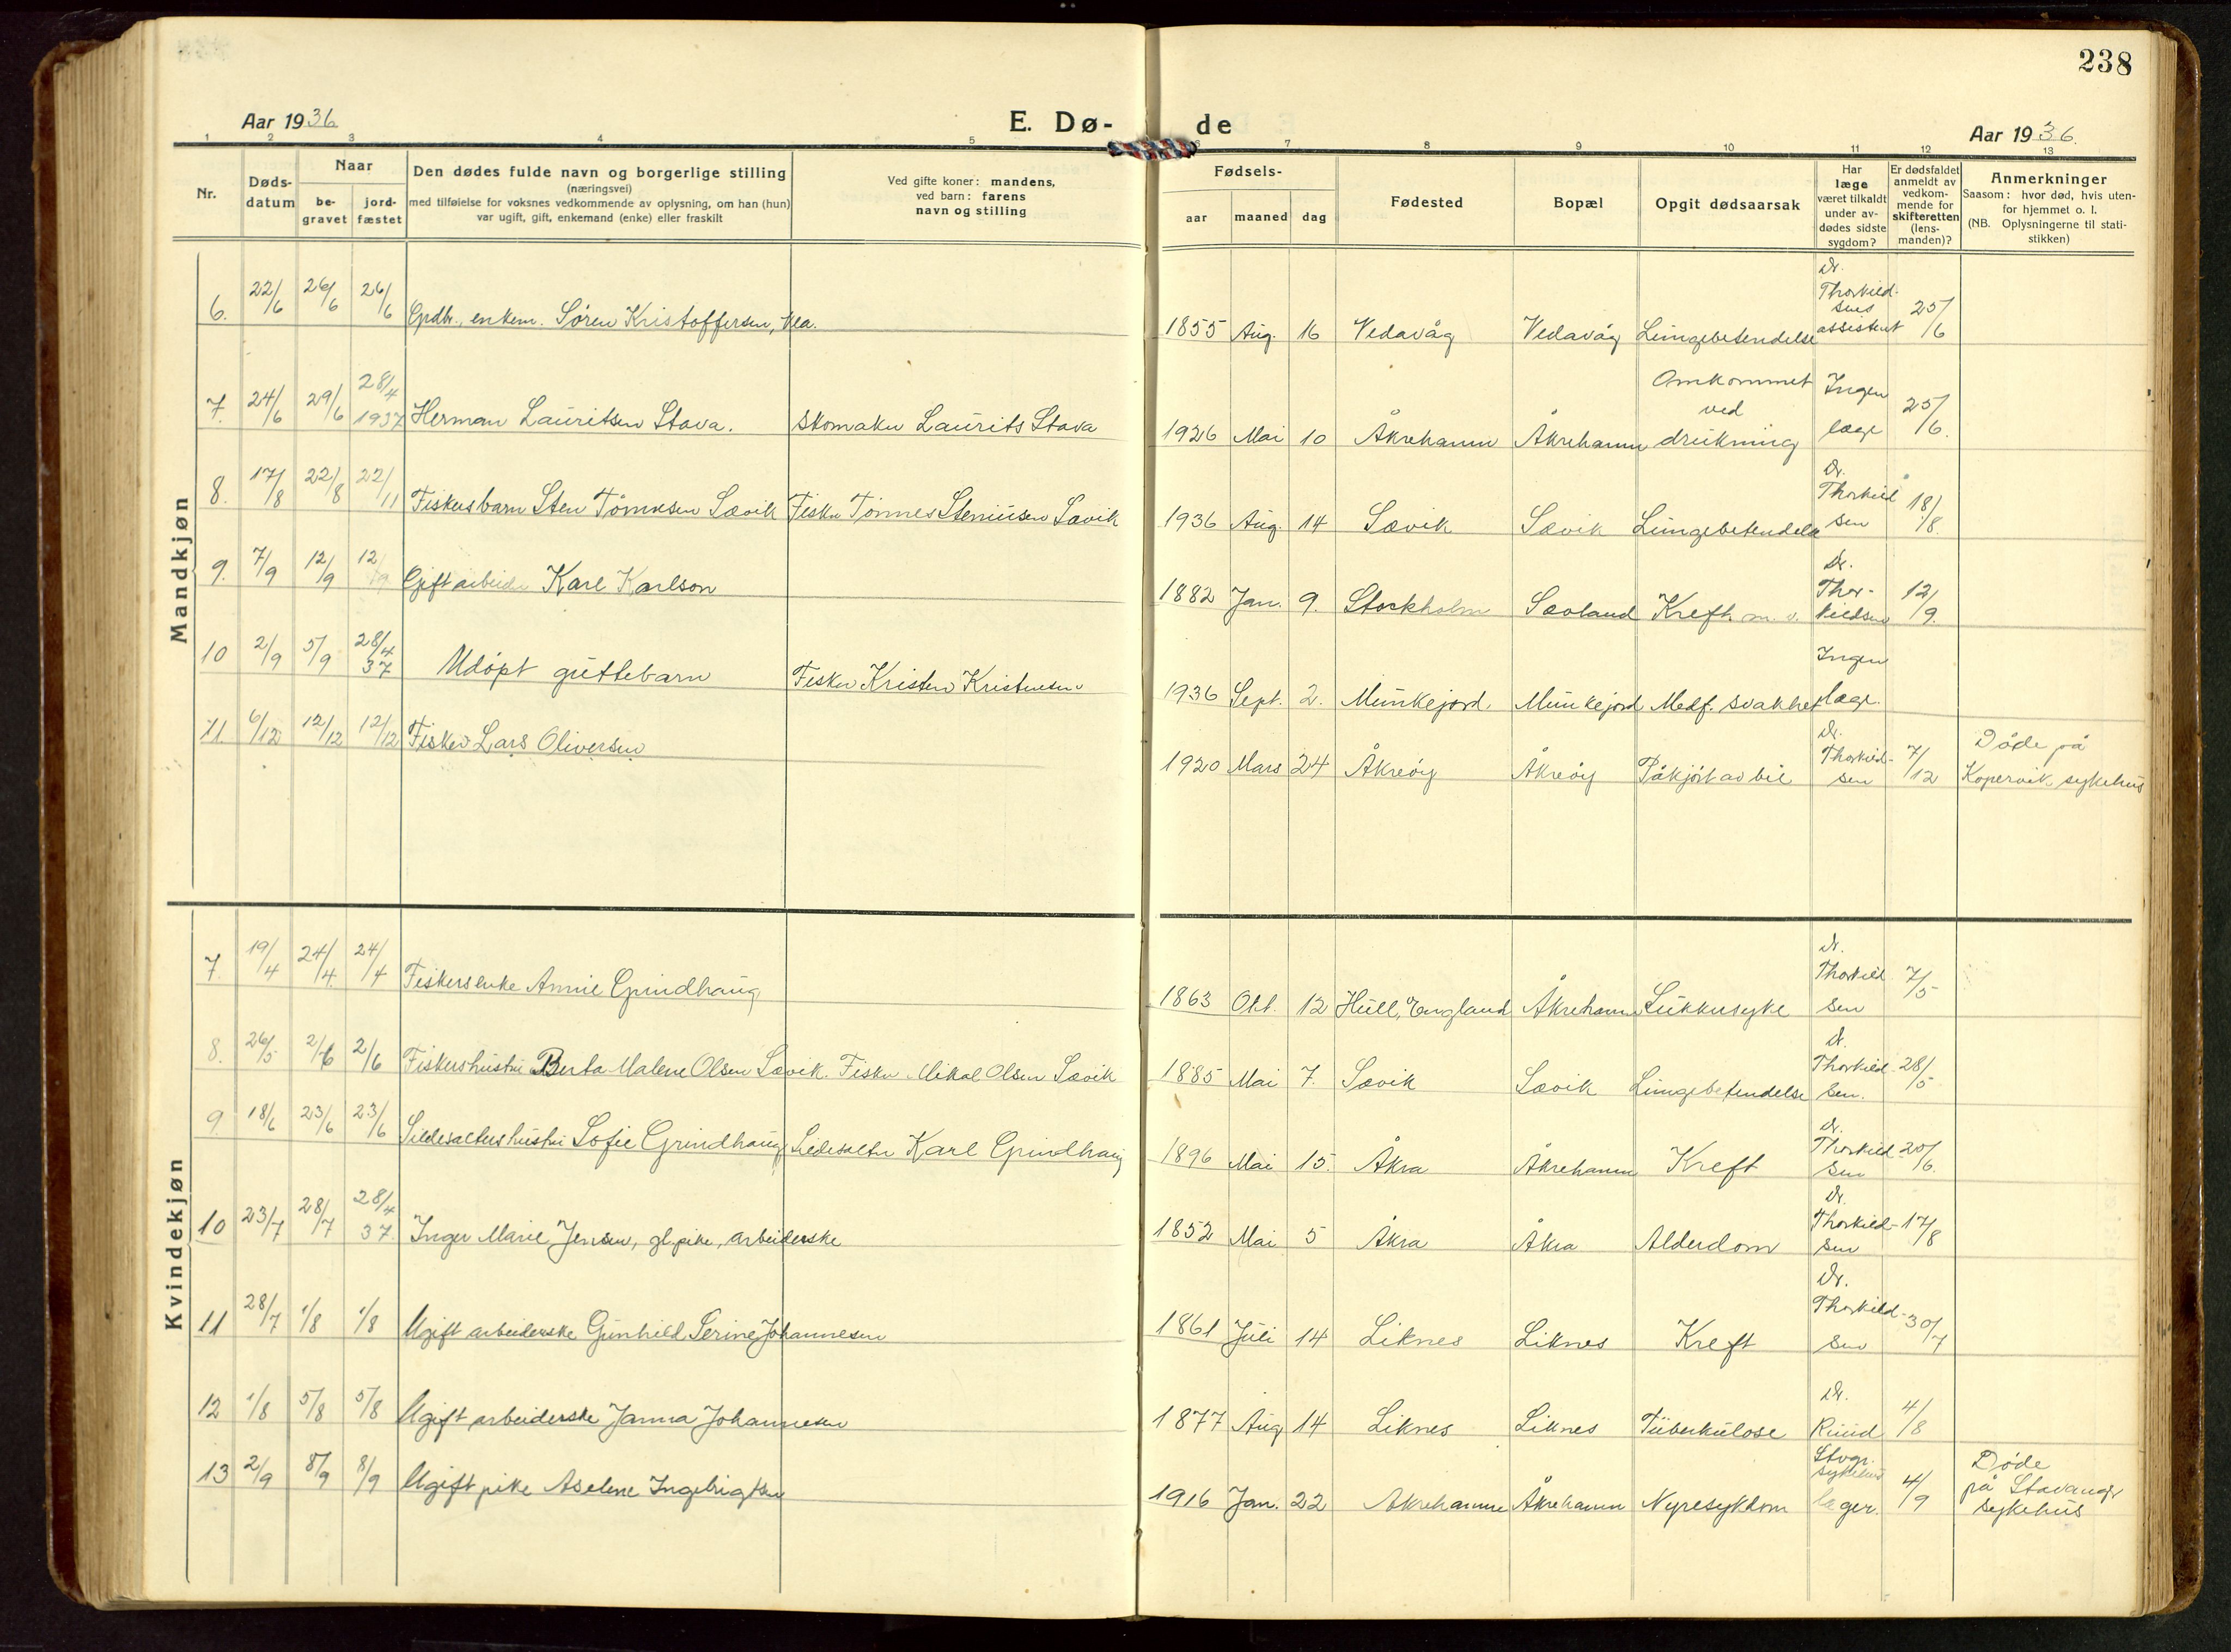 238
Aar 1936
E. Dø-
de
Aar 1936.
1 2 3 4 5 6 7 8 9 10 11 12 13
Nr.
Døds-
datum
Naar
be-
gravet
jord-
fæstet
Den dødes fulde navn og borgerlige stilling
(næringsvei)
med tilføielse for voksnes vedkommende av oplysning, om han (hun)
var ugift, gift, enkemand (enke) eller fraskilt
Ved gifte koner: mandens,
ved barn: farens
navn og stilling
Fødsels-
aar maaned dag
Fødested
Bopæl
Opgit dødsaarsak
Har
læge
været tilkaldt
under av-
dødes sidste
sygdom?
Er dødsfaldet
anmeldt av
vedkom-
mende for
skifteretten
(lens-
manden)?
Anmerkninger
Saasom: hvor død, hvis uten-
for hjemmet o. l.
(NB. Oplysningerne til stati-
stikken)
Mandkjøn
6. 22/6 26/6 26/6 Grdbr., enkem. Søren Kristoffersen, Vea. 1855 Aug. 16 Vedavåg Vedavåg Lungebetendelse Dr. Thorkild- sens assistent 25/6
7. 24/6 29/6 28/4 1937 Herman Lauritsen Stava. Skomaker Laurits Stava 1926 Mai 10 Åkrehamn Åkrehamn Omkommet ved drukning Ingen læge 25/6.
8. 17/8 22/8 22/11 Fiskersbarn Sten Tønnesen Sævik Fisker Tønnes Steniusen Sævik 1936 Aug. 14 Sævik Sævik Lungebetendelse Dr. Thorkild sen 18/8.
9. 7/9 12/9 12/9 Gift arbeider Karl Karlson 1882 Jan. 9. Stockholm Sævland Kreft m. v. Dr. Thor- kildsen 12/9.
10 2/9 5/9 28/4 37 Udøpt guttebarn Fisker Kristen Kristensen 1936 Sept. 2. Munkejord. Munkejord Medf. svakhet Ingen læge.
11. 6/12 12/12 12/12 Fisker Lars Oliversen 1920 Mars 24 Åkreøy Åkreøy Påkjørt av bil Dr. Thorkild- sen 7/12 Døde på Kopervik sykehus
Kvindekjøn
7. 19/4 24/4. 24/4 Fiskersenke Annie Grindhaug 1863 Okt. 12 Hull, England Åkrehamn Sukkersyke Dr. Thorkild sen 7/5
8. 26/5 2/6 2/6 Fiskershustru Berta Malene Olsen Sævik. Fisker Mikal Olsen Sævik 1885 Mai 7. Sævik Sævik Lungebetendelse Dr. Thorkild- sen. 28/5
9 18/6 23/6 23/6 Sildesaltershustru Sofie Grindhaug Sildesalter Karl Grindhaug 1896 Mai 15. Åkra Åkrehamn Kreft Dr. Thorkild- sen 20/6.
10 23/7 28/7 28/4 37. Inger Marie Jensen, gl. pike, arbeiderske 1852 Mai 5 Åkra Åkra Alderdom Dr. Thorkild- sen 17/8
11 28/7 1/8 1/8 Ugift arbeiderske Gunhild Serine Johannesen 1861 Juli 14 Liknes Liknes Kreft Dr. Thorkild- sen 30/7
12 1/8 5/8 5/8 Ugift arbeiderske Janna Johannesen 1877 Aug 14 Liknes Liknes Tuberkulose Dr. Ruud 4/8
13 2/9 8/9 8/9 Ugift pike Aselene Ingebrigtsen 1916 Jan. 22 Åkrehamn Åkrehamn Nyresykdom Stvgr. sykehus læger. 4/9 Døde på Stavanger sykehus